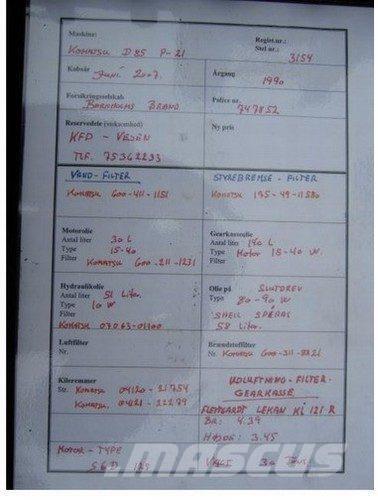 Maskine:
KOMATSU D85 P-21
Regist.nr.:
Stel nr.:
3154
Købsår
Juni 2007.
Årgang
1990
Forsikringsselskab
BORNHOLMS BRAND
Police nr.
747852
Reservedele (virksomhed)
KFD - VEJEN
TLF. 75362233
Ny pris
VAND-FILTER
KOMATSU 600-411-1151
STYREBREMSE-FILTER
KOMATSU 195-49-11580
Motorolie
Antal liter 30 L
Type 15-40
Filter KOMATSU 600-211-1231
Gearkasseolie
Antal liter 140 L
Type Motor 15-40 W.
Filter
Hydraulikolie
Antal liter 51 Liter.
Type 10 W
Filter
KOMATSU 07063-01100
Olie på SLUTDREV
Type 80-90 W
SHELL
58 Liter.
Luftfilter
Nr.
Brændstoffilter
Nr. KOMATSU 600-311-8321
Kileremmer
Str. KOMATSU 04120-21754
KOMATSU. 04121-22279
UDLUFTNING-FILTER-
GEARKASSE
LEMAN KI 121 R
BR: 4.39
HØJDE: 3.45
MOTOR-TYPE
S6D 125
VÆGT
mascus